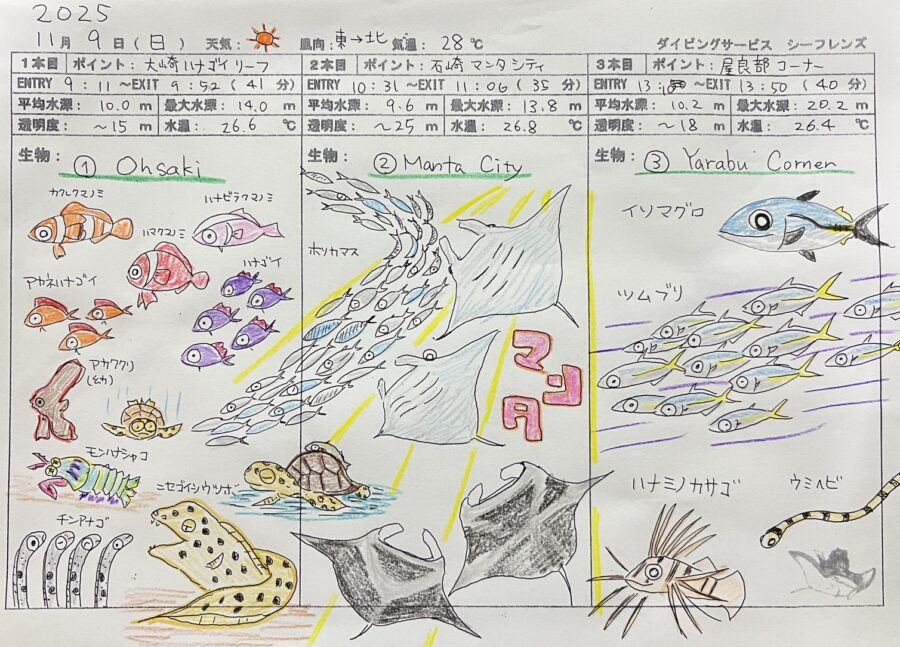 2025
11月 9日(日) 天気: 風向:東→北 気温: 28℃ ダイビングサービス シーフレンズ
1本目 ポイント: 大崎ハナゴイリーフ
ENTRY 9:11~EXIT 9:52(41分)
平均水深: 10.0m 最大水深: 14.0m
透明度: ~15m 水温: 26.6℃
生物: ① Ohsaki
カクレクマノミ
ハナビラクマノミ
ハマクマノミ
ハナゴイ
アカネハナゴイ
アカククリ
(幼)
モンハナシャコ
ニセゴイシウツボ
チンアナゴ
2本目 ポイント: 石崎マンタシティ
ENTRY 10:31~EXIT 11:06(35分)
平均水深: 9.6m 最大水深: 13.8m
透明度: ~25m 水温: 26.8℃
生物: ② Manta City
ホソカマス
マンタ
3本目 ポイント: 屋良部コーナー
ENTRY 13:10~EXIT 13:50(40分)
平均水深: 10.2m 最大水深: 20.2m
透明度: ~18m 水温: 26.4℃
生物: ③ Yarabu Corner
イソマグロ
ツムブリ
ハナミノカサゴ
ウミヘビ